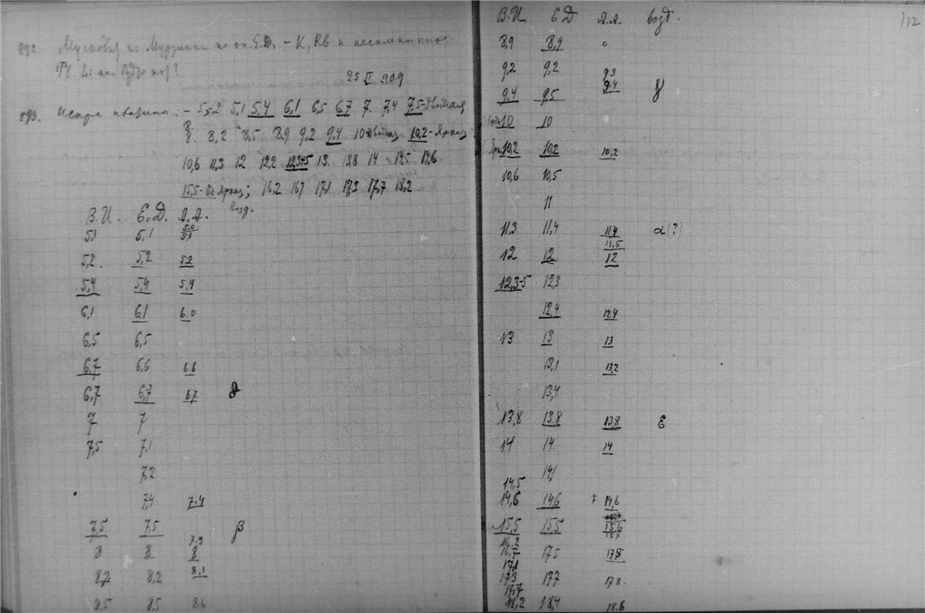 892. Мусковит из Мурзинки по ок. Е.Д. – К, Rb и несомненно
Tl. Li или будто нет?
25 II 909
893. Искра – 5,5 5,1 5,4 6,1 6,5 6,7 7 7,4 7,5
8 8,2 8,5 8,9 9,2 9,4 10 10,2-яркая
10,6 11,3 12 12,2 12,3-5 13 13,8 14 14,5 14,6
15,5 яркая; 16,2 16,7 17,1 17,3 17,7 18,2
В.И. Е.Д. А.А. возд.
5,1 5,1 5,1
5,2 5,2 5,2
5,4 5,4 5,4
6,1 6,1 6.0
6,5 6,5
6,7 6,6 6,6
6,7 6,7 6,7
7 7
7,5 7,1
7,2
7,4 7.4
7,5 7,5 β
7,9
8 8 8
8,2 8,2 8,1
8,5 8,5 8,6
112
В.И. Е.Д. А.А. возд.
8,9 8,9 "
9,2 9,2 9,3
9,4 9,5 9,4 γ
10 10
10,2 10,2 10,2
10,6 10,5
11
11,3 11,4 11,4 α(?)
11,5
12 12 12
12,3-5 12,3
12,4 12,4
13 13 13
13,1 13,2
13,4
13,8 13,8 13,8 ε
14 14 14
14,1
14,5
14,6 14,6 14,6
15,5 15,5 15,6
16,2
16,7 17,5 17,5
17,1
17,3 17,7 17,8
17,7
18,2 18,4 18,6